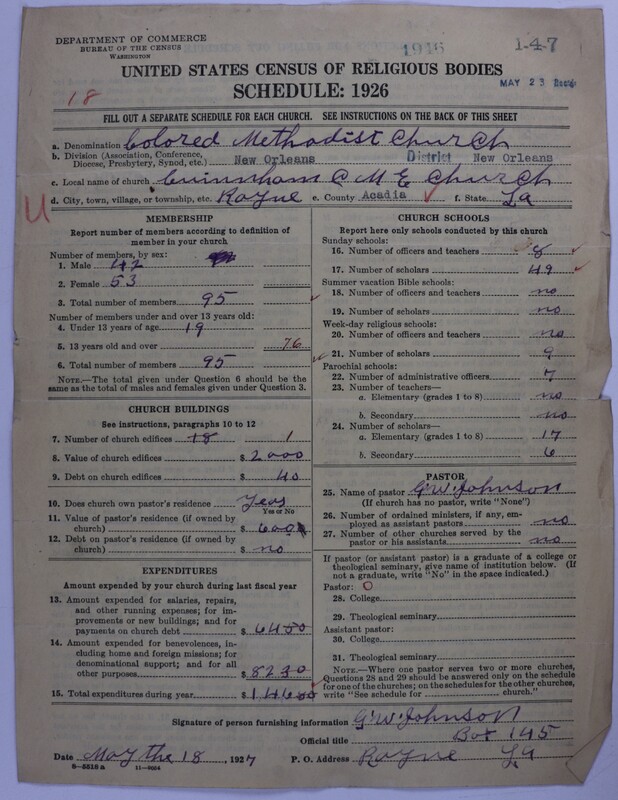 DEPARTMENT OF COMMERCE
BUREAU OF THE CENSUS
WASHINGTON
1-4-7
UNITED STATES CENSUS OF RELIGIOUS BODIES
MAY 23
SCHEDULE: 1926
18
FILL OUT A SEPARATE SCHEDULE FOR EACH CHURCH. SEE INSTRUCTIONS ON THE BACK OF THIS SHEET
a. Denomination Colored Methodist Church
b. Division (Association, Conference, Diocese, Presbytery, Synod, etc.) New Orleans District New Orleans
c. Local name of church C M E Church
d. City, town, village, or township, etc. Rayne e. County Acadia f. State La
MEMBERSHIP
Report number of members according to definition of
member in your church
Number of members, by sex:
1. Male 42
2. Female 53
3. Total number of members 95
Number of members under and over 13 years old:
4. Under 13 years of age 19
5. 13 years old and over 76
6. Total number of members 95
NOTE.—The total given under Question 6 should be
same as the total of males and females given under Question 3.
CHURCH BUILDINGS
See instructions, paragraphs 10 to 12
7. Number of church edifices 18 1
8. Value of church edifices $ 2000
9. Debt on church edifices $ 40
10. Does church own pastor's residence Yeas
Yes or No
11. Value of pastor's residence (if owned by
church) $ 600
12. Debt on pastor's residence (if owned by
church) $ no
EXPENDITURES
Amount expended by your church during last fiscal year
13. Amount expended for salaries, repairs,
and other running expenses; for im-
provements or new buildings; and for
payments on church debt $ 6450
14. Amount expended for benevolences,
including home and foreign missions; for
denominational support; and for all
other purposes $ 8230
15. Total expenditures during year $
CHURCH SCHOOLS
Report here only schools conducted by this church
Sunday schools:
16. Number of officers and teachers 8
17. Number of scholars 49
Summer vacation Bible schools:
18. Number of officers and teachers no
19. Number of scholars no
Week-day religious schools:
20. Number of officers and teachers no
21. Number of scholars 9
Parochial schools:
22. Number of administrative officers 7
23. Number of teachers—
a. Elementary (grades 1 to 8) no
b. Secondary no
24. Number of scholars—
a. Elementary (grades 1 to 8) 17
b. Secondary 6
PASTOR
25. Name of pastor G. W. Johnson
(If church has no pastor, write "None")
26. Number of ordained ministers, if any, em-
ployed as assistant pastors no
27. Number of other churches served by the
pastor or his assistants no
If pastor (or assistant pastor) is a graduate of a college or
theological seminary, give name of institution below. (If
not a graduate, write "No" in the space indicated.)
Pastor: O
28. College
29. Theological seminary
Assistant pastor:
30. College
31. Theological seminary
NOTE.—Where one pastor serves two or more churches,
Questions 28 and 29 should be answered only on the schedule
for one of the churches; on the schedules for the other churches,
write "See schedule for church."
Signature of person furnishing information G. W. Johnson
Official title Box 145
Date May the 18, 1927 P. O. Address Rayne La
8-5518 a